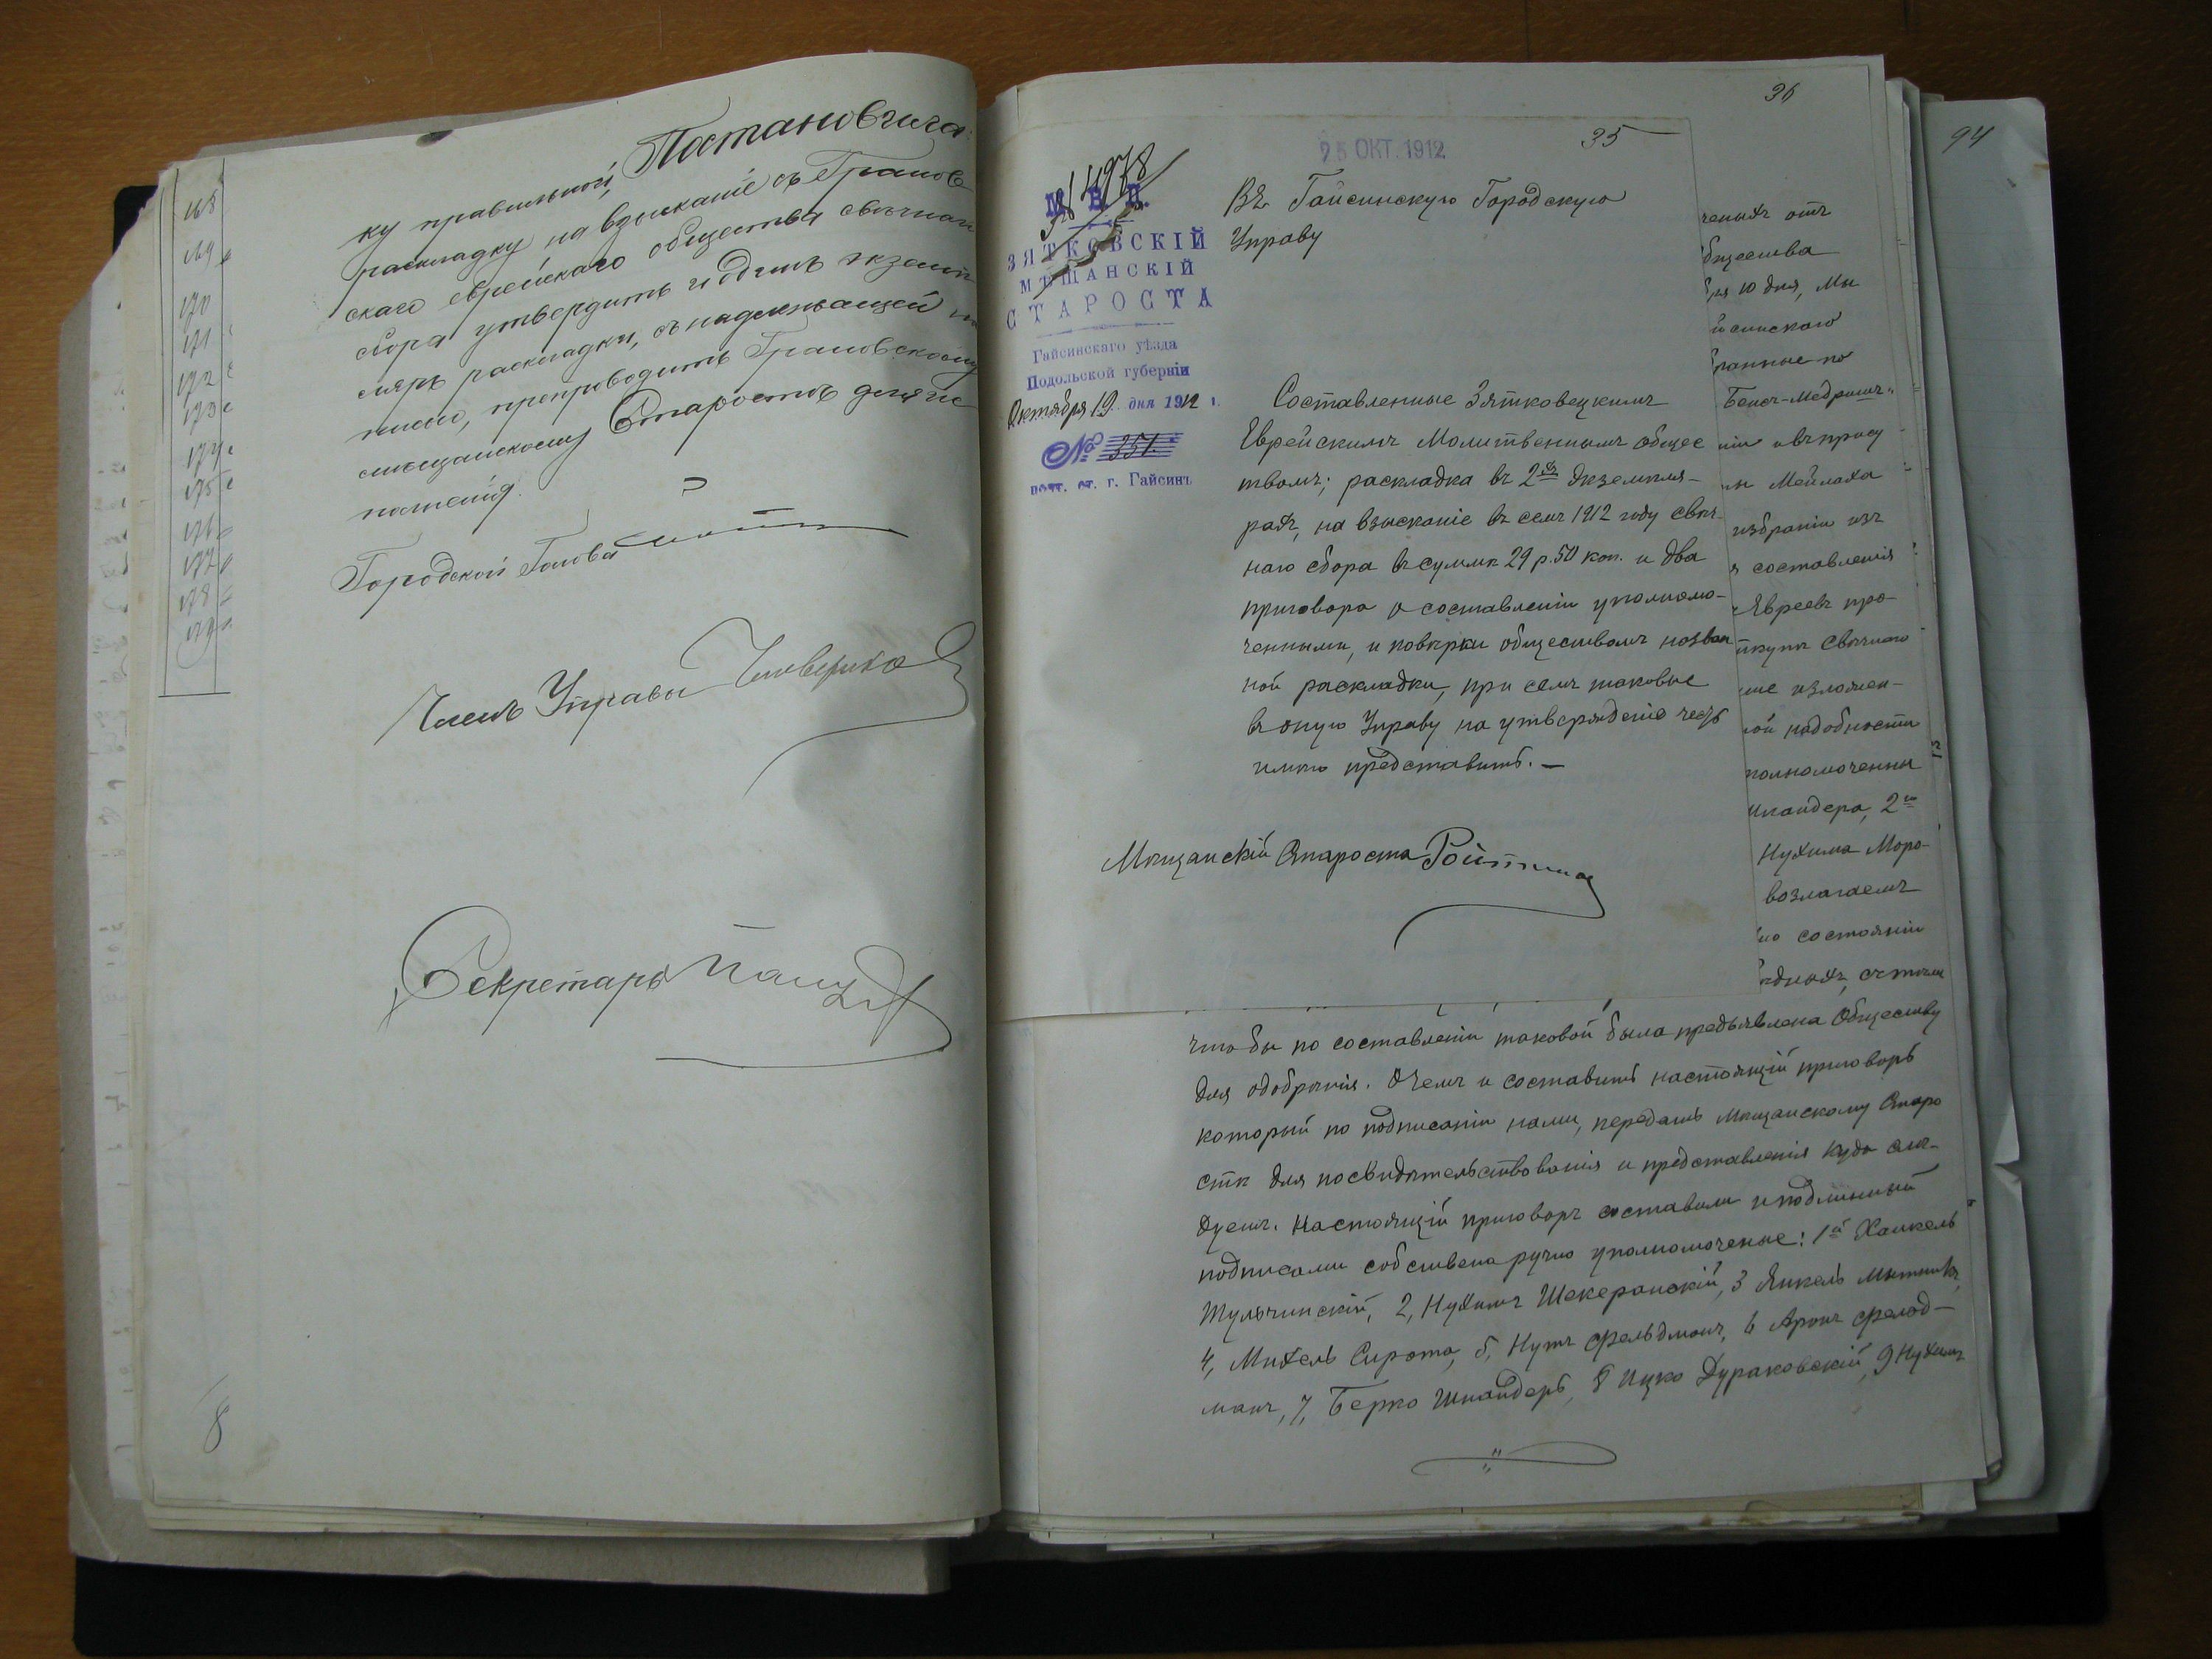 168
169
170
171
172
173
174
175
176
177
178
179
ку правильной, Постановила:
раскладку на взысканіе съ Гранов
скаго еврейскаго общества свѣчнаго
сбора утвердить и одинъ экземп
ляръ раскладки, съ надлежащей
писью, препроводить Грановскому
мѣщанскому Старостѣ для
Городской Голова
Членъ Управы
Секретарь
8
36
94
25 ОКТ. 1912
35
4978
М. В. Д.
ЗЯТКОВСКІЙ
МѢЩАНСКІЙ
СТАРОСТА
Гайсинскаго уѣзда
Подольской губерніи
Октября 19 дня 1912 г.
№ 351.
почт. ст. г. Гайсинъ
Въ Гайсинскую Городскую
Управу
Составленные Зятковецкимъ
Еврейскимъ Молитвеннымъ общес
твомъ; раскладка въ 2хъ экземпля-
рахъ, на взысканіе въ семъ 1912 году свѣч-
наго сбора въ суммѣ 29 р. 50 коп. и два
приговора о составленіи уполномо-
ченными, и повѣрки обществомъ назван
ной раскладки, при семъ таковые
въ оную Управу на утвержденіе честь
имѣю представить. —
Мѣщанскій Староста Ройтман
ченыхъ отъ
бщества
10 дня, Мы
йсинскаго
бранные по
Бейсъ-Медришъ"
ніи и въ прису
Мейлаха
избраніи изъ
составленія
Евреевъ про-
свѣчнаго
изложен-
ной надобности
полномоченны
Шнайдера, 2го
Нухима Моро-
возлагаемъ
состояніи
чтобы по составленіи таковой была предъявлена Обществу
для одобренія. О чемъ и составить настоящій приговоръ
который по подписаніи нами, передать Мѣщанскому Старо
стѣ для посвидѣтельствованія и представленія куда слѣ-
дуетъ. Настоящій приговоръ составили и подлинный
подписами собственоручно уполномоченые: 1й Хаикель
Тульчинскій, 2, Нухимъ Шекеранскій, 3 Янкель Мытникъ,
4, Михель Сирота, 5, Нутъ Фельдманъ, 6 Аронъ Фельд-
манъ, 7, Берко Шнайдеръ, 8 Ицко Дураковскій, 9 Нухимъ